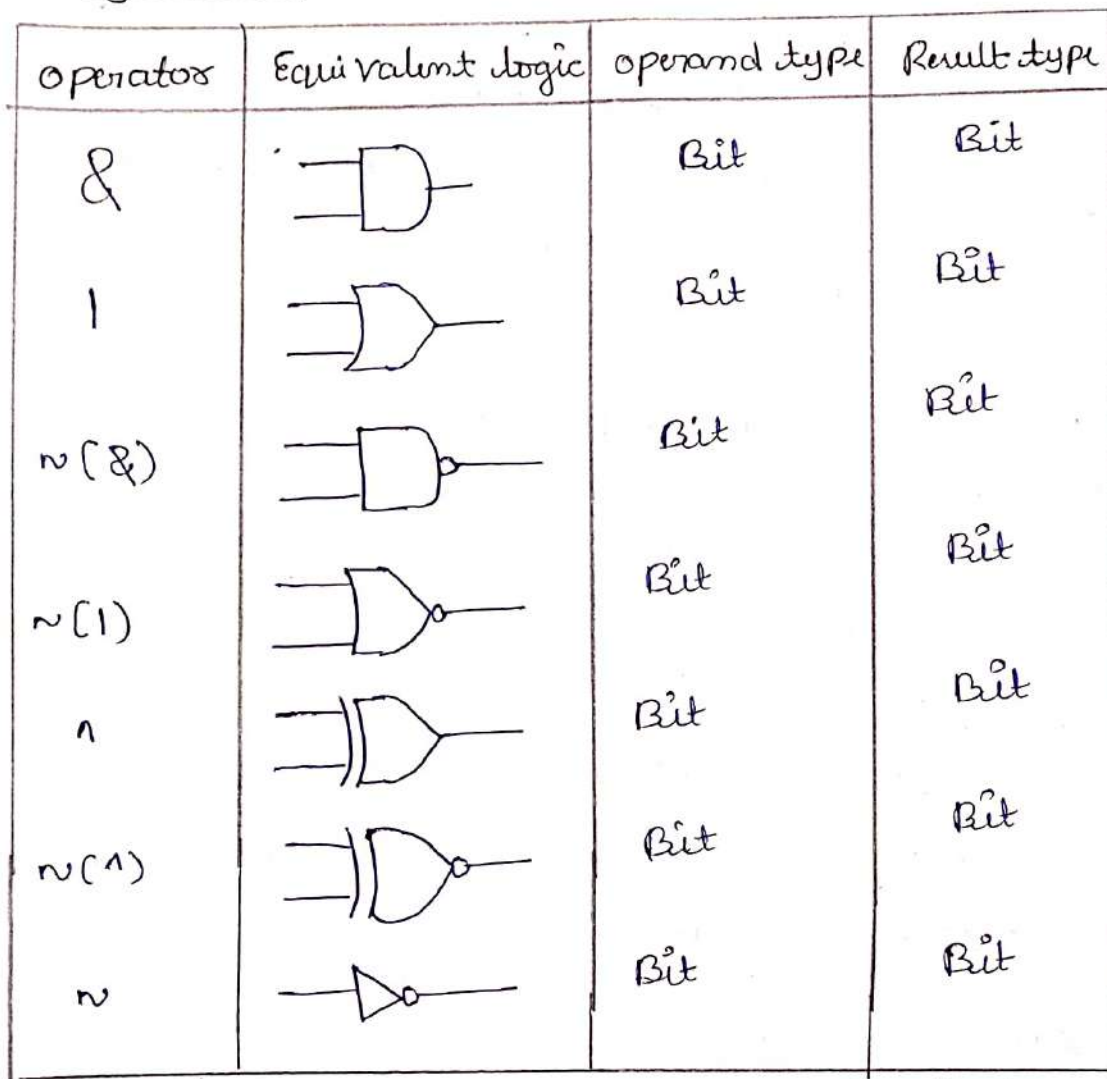 operator Equivalent logic operand type Result type
& Bit Bit
| Bit Bit
~(&) Bit Bit
~(|) Bit Bit
^ Bit Bit
~(^) Bit Bit
~ Bit Bit